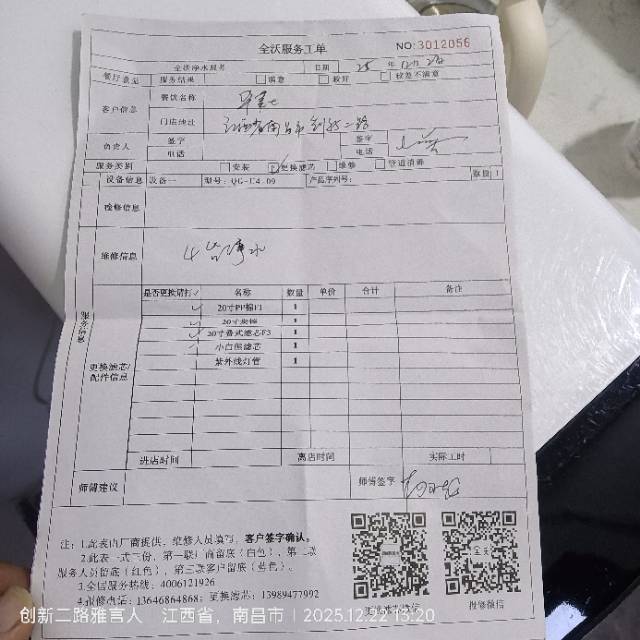 全沃服务工单
NO:3012056
全沃净水服务 日期 25 年 12月 22
餐厅意见 服务结果 满意 较好 较差不满意
客户信息 餐饮名称
门店地址 江西省南昌市创新二路
负责人 签字 签字
电话 电话
服务类别 安装 更换滤芯 维修 管道消毒
设备信息 设备一 型号: 产品序列号: 数量 1
检修信息
维修信息
是否更换请打✓ 名称 数量 单价 合计 备注
✓ 20寸PP棉F1 1
✓ 20寸 1
✓ 20寸 滤芯F3 1
✓ 小白熊滤芯 1
紫外线灯管 1
更换滤芯/
配件信息
进店时间 离店时间 实际工时
师傅建议 师傅签字
注:1.此表由厂商提供,维修人员填写,客户签字确认。
2.此表一式三份,第一联厂商留底(白色),第二联
服务人员留底(红色),第三联客户留底(蓝色)。
3.全国服务热线:4006121926
4.报修电话:13646864868;更换滤芯:13989477992
全沃
报修微信
创新二路雅言人 江西省,南昌市 | 2025.12.22 13:20